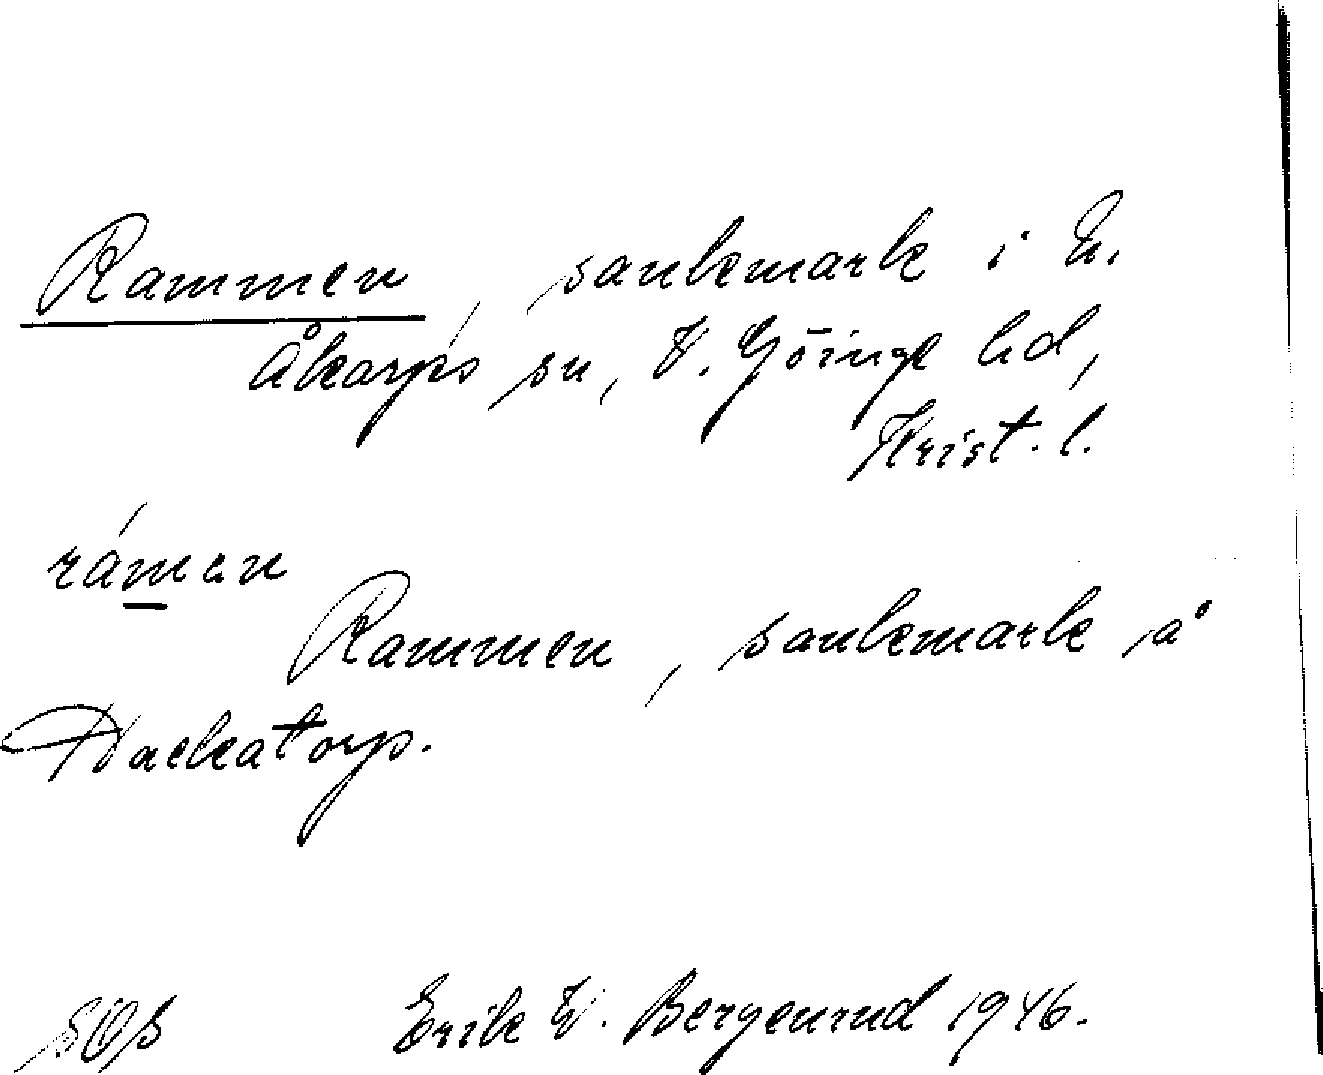 Rammen, sankmark i N.
Åkarps sn, V. Göinge hd,
Krist. l.
rámen
Rammen, sankmark å
Nackatorp.
SOS Erik W. Bergenrud 1946.